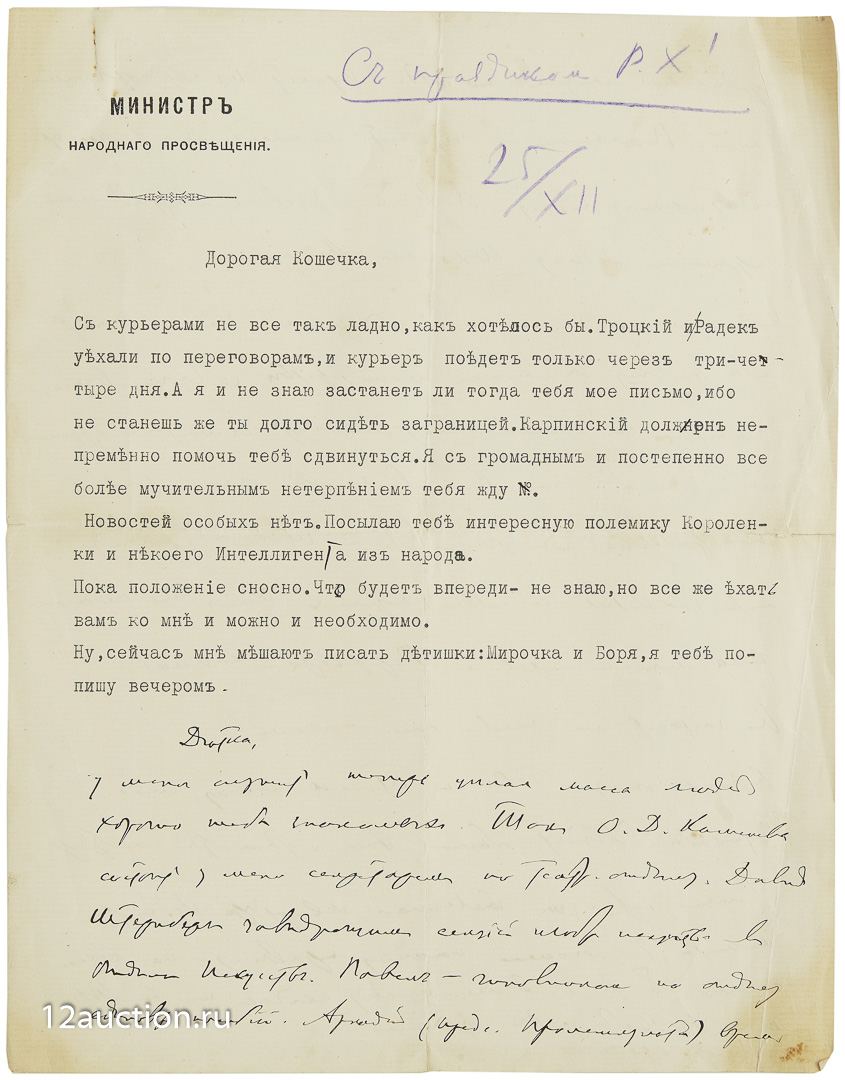 Съ праздником Р. Х!
МИНИСТРЪ
НАРОДНАГО ПРОСВѢЩЕНІЯ.
25/XII
Дорогая Кошечка,
Съ курьерами не все такъ ладно,какъ хотѣлось бы.Троцкій и Радекъ
уѣхали по переговорамъ,и курьеръ поѣдетъ только черезъ три-чет-
тыре дня.А я и не знаю застанетъ ли тогда тебя мое письмо,ибо
не станешь же ты долго сидѣть заграницей.Карпинскій долженъ не-
премѣнно помочь тебѣ сдвинуться.Я съ громаднымъ и постепенно все
болѣе мучительнымъ нетерпѣніемъ тебя жду .
Новостей особыхъ нѣтъ.Посылаю тебѣ интересную полемику Королен-
ки и нѣкоего Интеллигента изъ народа.
Пока положеніе сносно.Что будетъ впереди- не знаю,но все же ѣхать
вамъ ко мнѣ и можно и необходимо.
Ну,сейчасъ мнѣ мѣшаютъ писать дѣтишки:Мирочка и Боря,я тебѣ по-
пишу вечеромъ.
Дѣтка,
у меня служит теперь целая масса людей
хорошо тебе знакомых. Так О. Д. Каменева
состоит у меня секретарем по Театр. отделу. Давид
Штеренберг заведующим секцией изобр искусств в
отделе Искусств. Павел – чиновником по отделу
Аркадий (пред. Пролеткульта)
12auction.ru